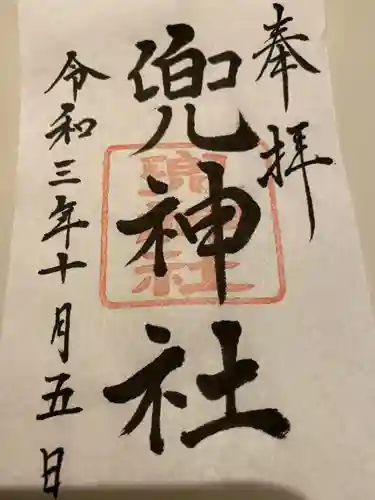 奉拝
兜神社
令和三年十月五日
兜神社